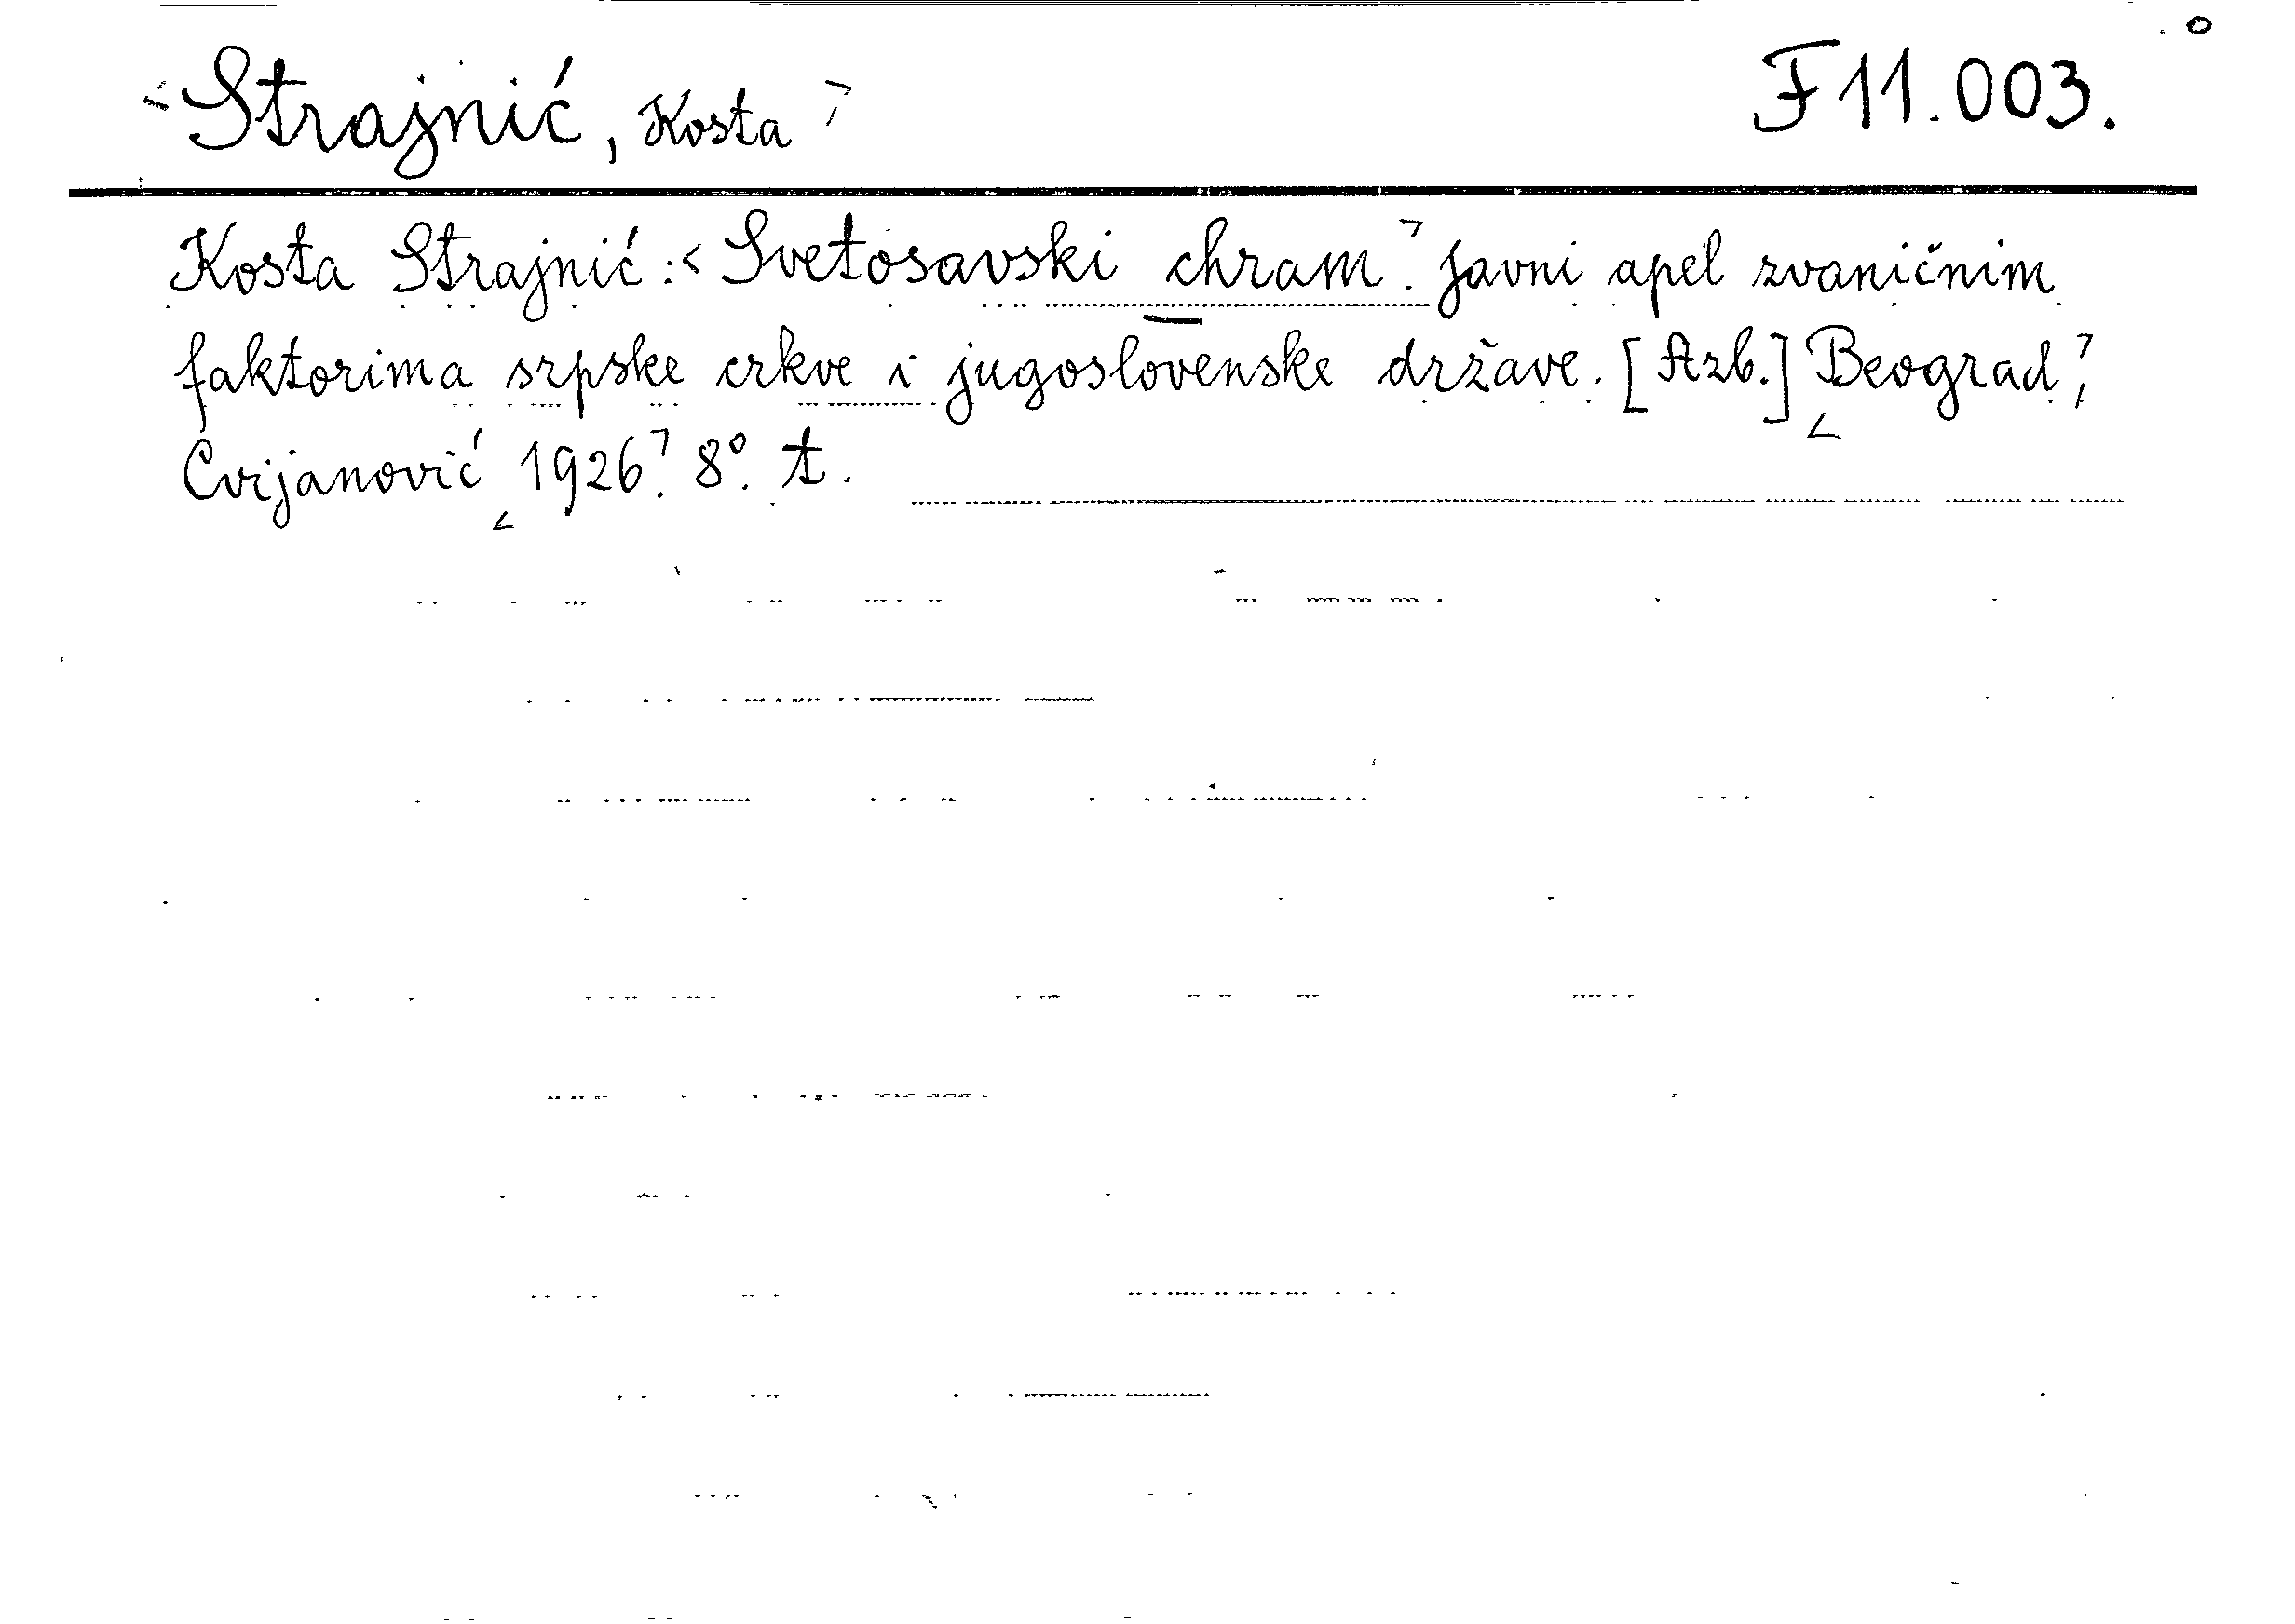 <Strajnić, Kosta> F 11.003.
Kosta Strajnić: <Svetosavski chram>. Javni apel zvaničnim
faktorima srpske crkve i jugoslovenske države. [Azb.] <Beograd>,
Cvijanović <1926>. 8°. t.